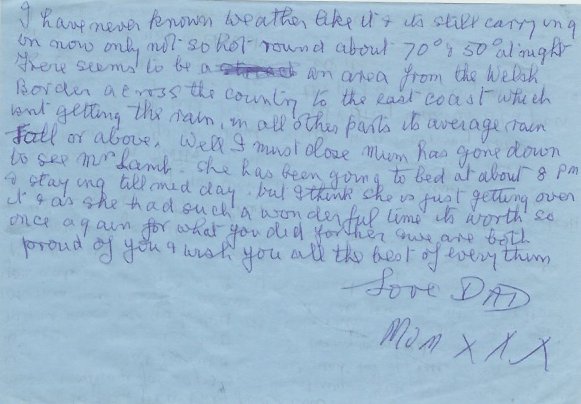 I have never known weather like it & its still carrying
on now only not so hot round about 70° & 50° at night
There seems to be a an area from the Welsh
Border across the country to the east coast which
isnt getting the rain, in all other parts its average rain
fall or above. Well I must close Mum has gone down
to see Mrs Lamb. she has been going to bed at about 8 PM
& staying till mid day. but I think she is just getting over
it & as she had such a wonderful time its worth so
once again for what you did for her & we are both
proud of you & wish you all the best of everything
Love DAD
Mum X X X